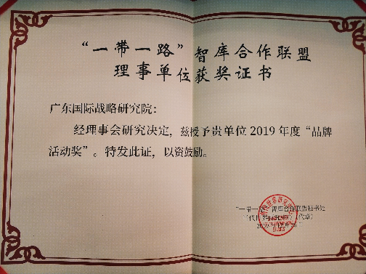 “一带一路”智库合作联盟
理事单位获奖证书
广东国际战略研究院：
经理事会研究决定，兹授予贵单位 2019 年度“品牌
活动奖”。特发此证，以资鼓励。
“一带一路”智库合作联盟秘书处